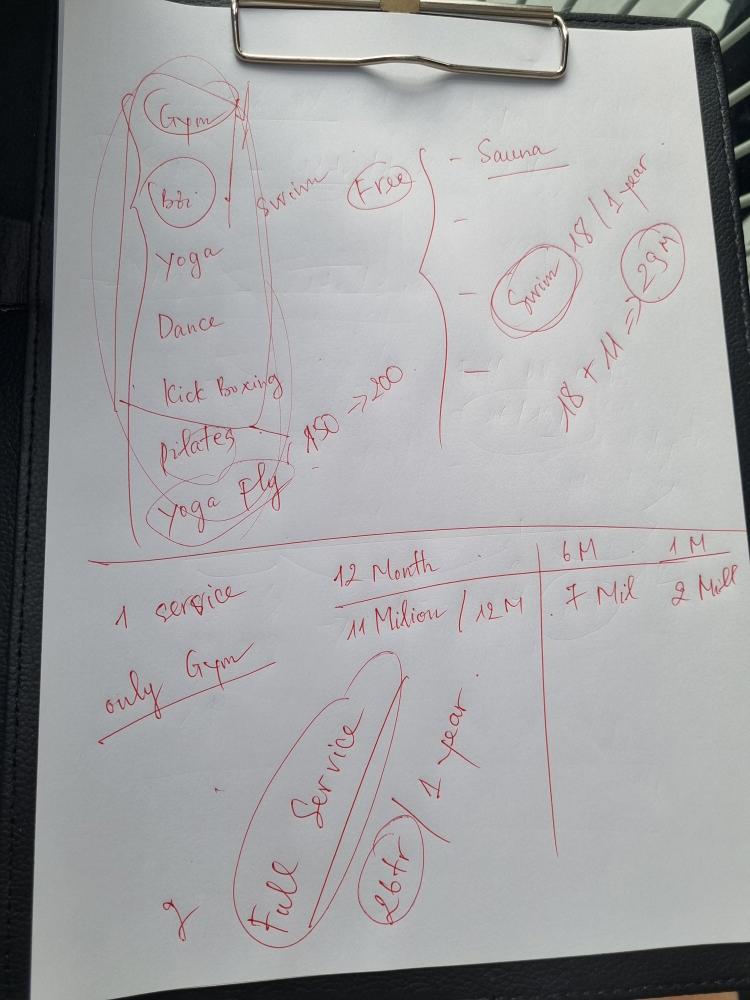 Gym
Bơi
Swim
Yoga
Dance
Kick Boxing
Pilates
Yoga Fly
150 => 200
Free
- Sauna
-
- Swim 18 / 1 year
-
18 + 11 => 29M
1 service
only Gym
12 Month
6 M
1 M
11 Milion / 12M
7 Mil
2 Mill
2
Full Service
26tr / 1 year